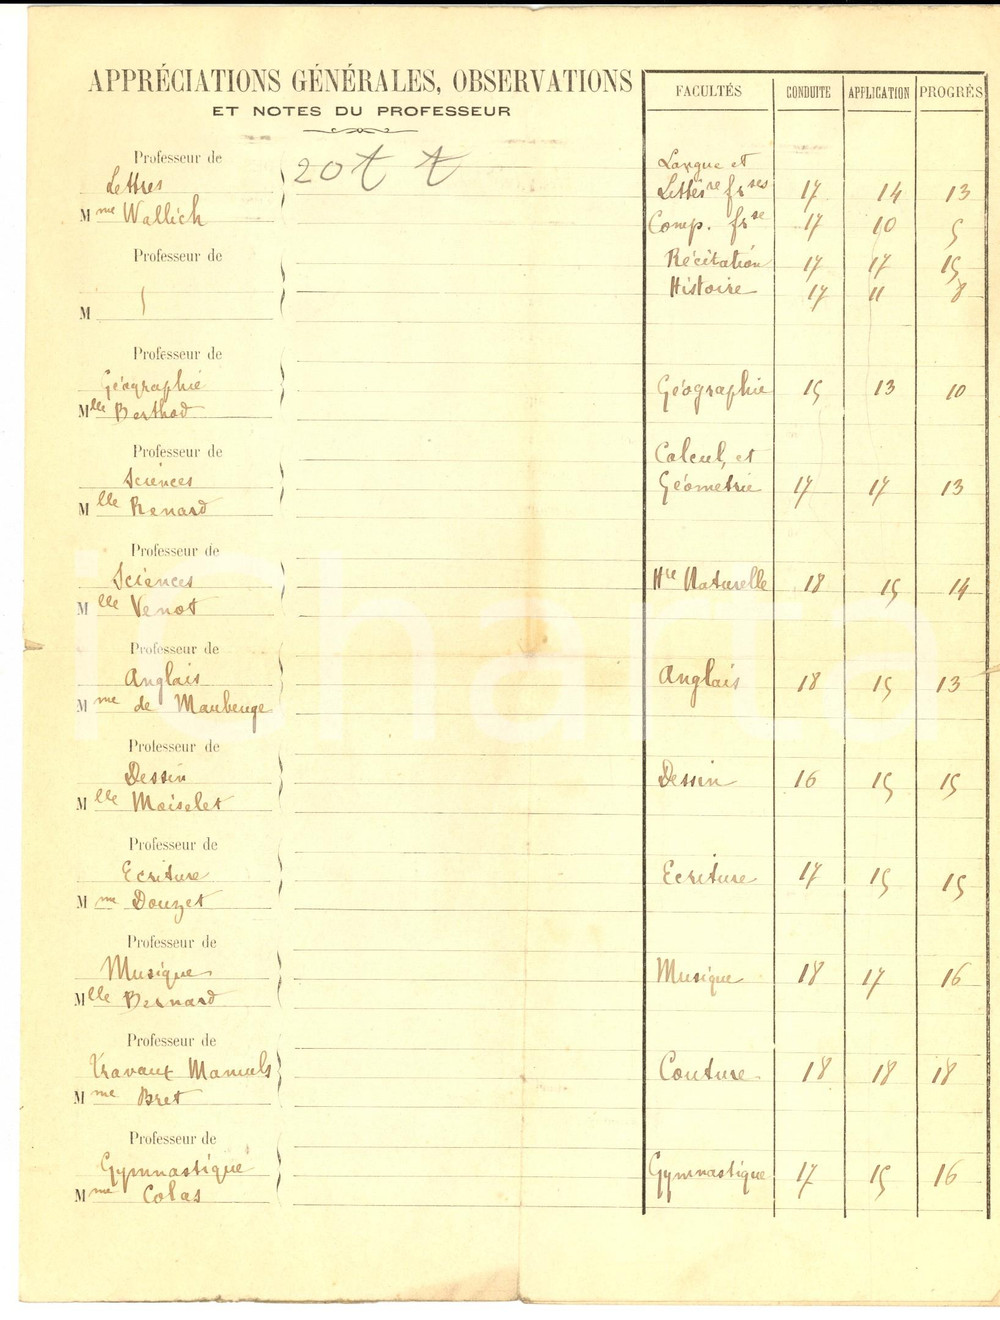 APPRÉCIATIONS GÉNÉRALES, OBSERVATIONS
ET NOTES DU PROFESSEUR
FACULTÉS CONDUITE APPLICATION PROGRÈS
Professeur de
Lettres
Mme Wallich
20 t t
Langue et
Littérre frses 17 14 13
Comp. frse 17 10 5
Professeur de
M
Récitation 17 17 15
Histoire 17 11 8
Professeur de
Géographie
Mlle Berthod
Géographie 15 13 10
Professeur de
Sciences
Mlle Renard
Calcul, et
Géometrie 17 17 13
Professeur de
Sciences
Mlle Venot
Hre Naturelle 18 15 14
Professeur de
Anglais
Mme de Maubeuge
Anglais 18 15 13
Professeur de
Dessin
Mlle Moiselet
Dessin 16 15 15
Professeur de
Ecriture
Mme Douzet
Ecriture 17 15 15
Professeur de
Musique
Mlle Bernard
Musique 18 17 16
Professeur de
Travaux Manuels
Mme Bret
Couture 18 18 18
Professeur de
Gymnastique
Mme Colas
Gymnastique 17 15 16
iCharta